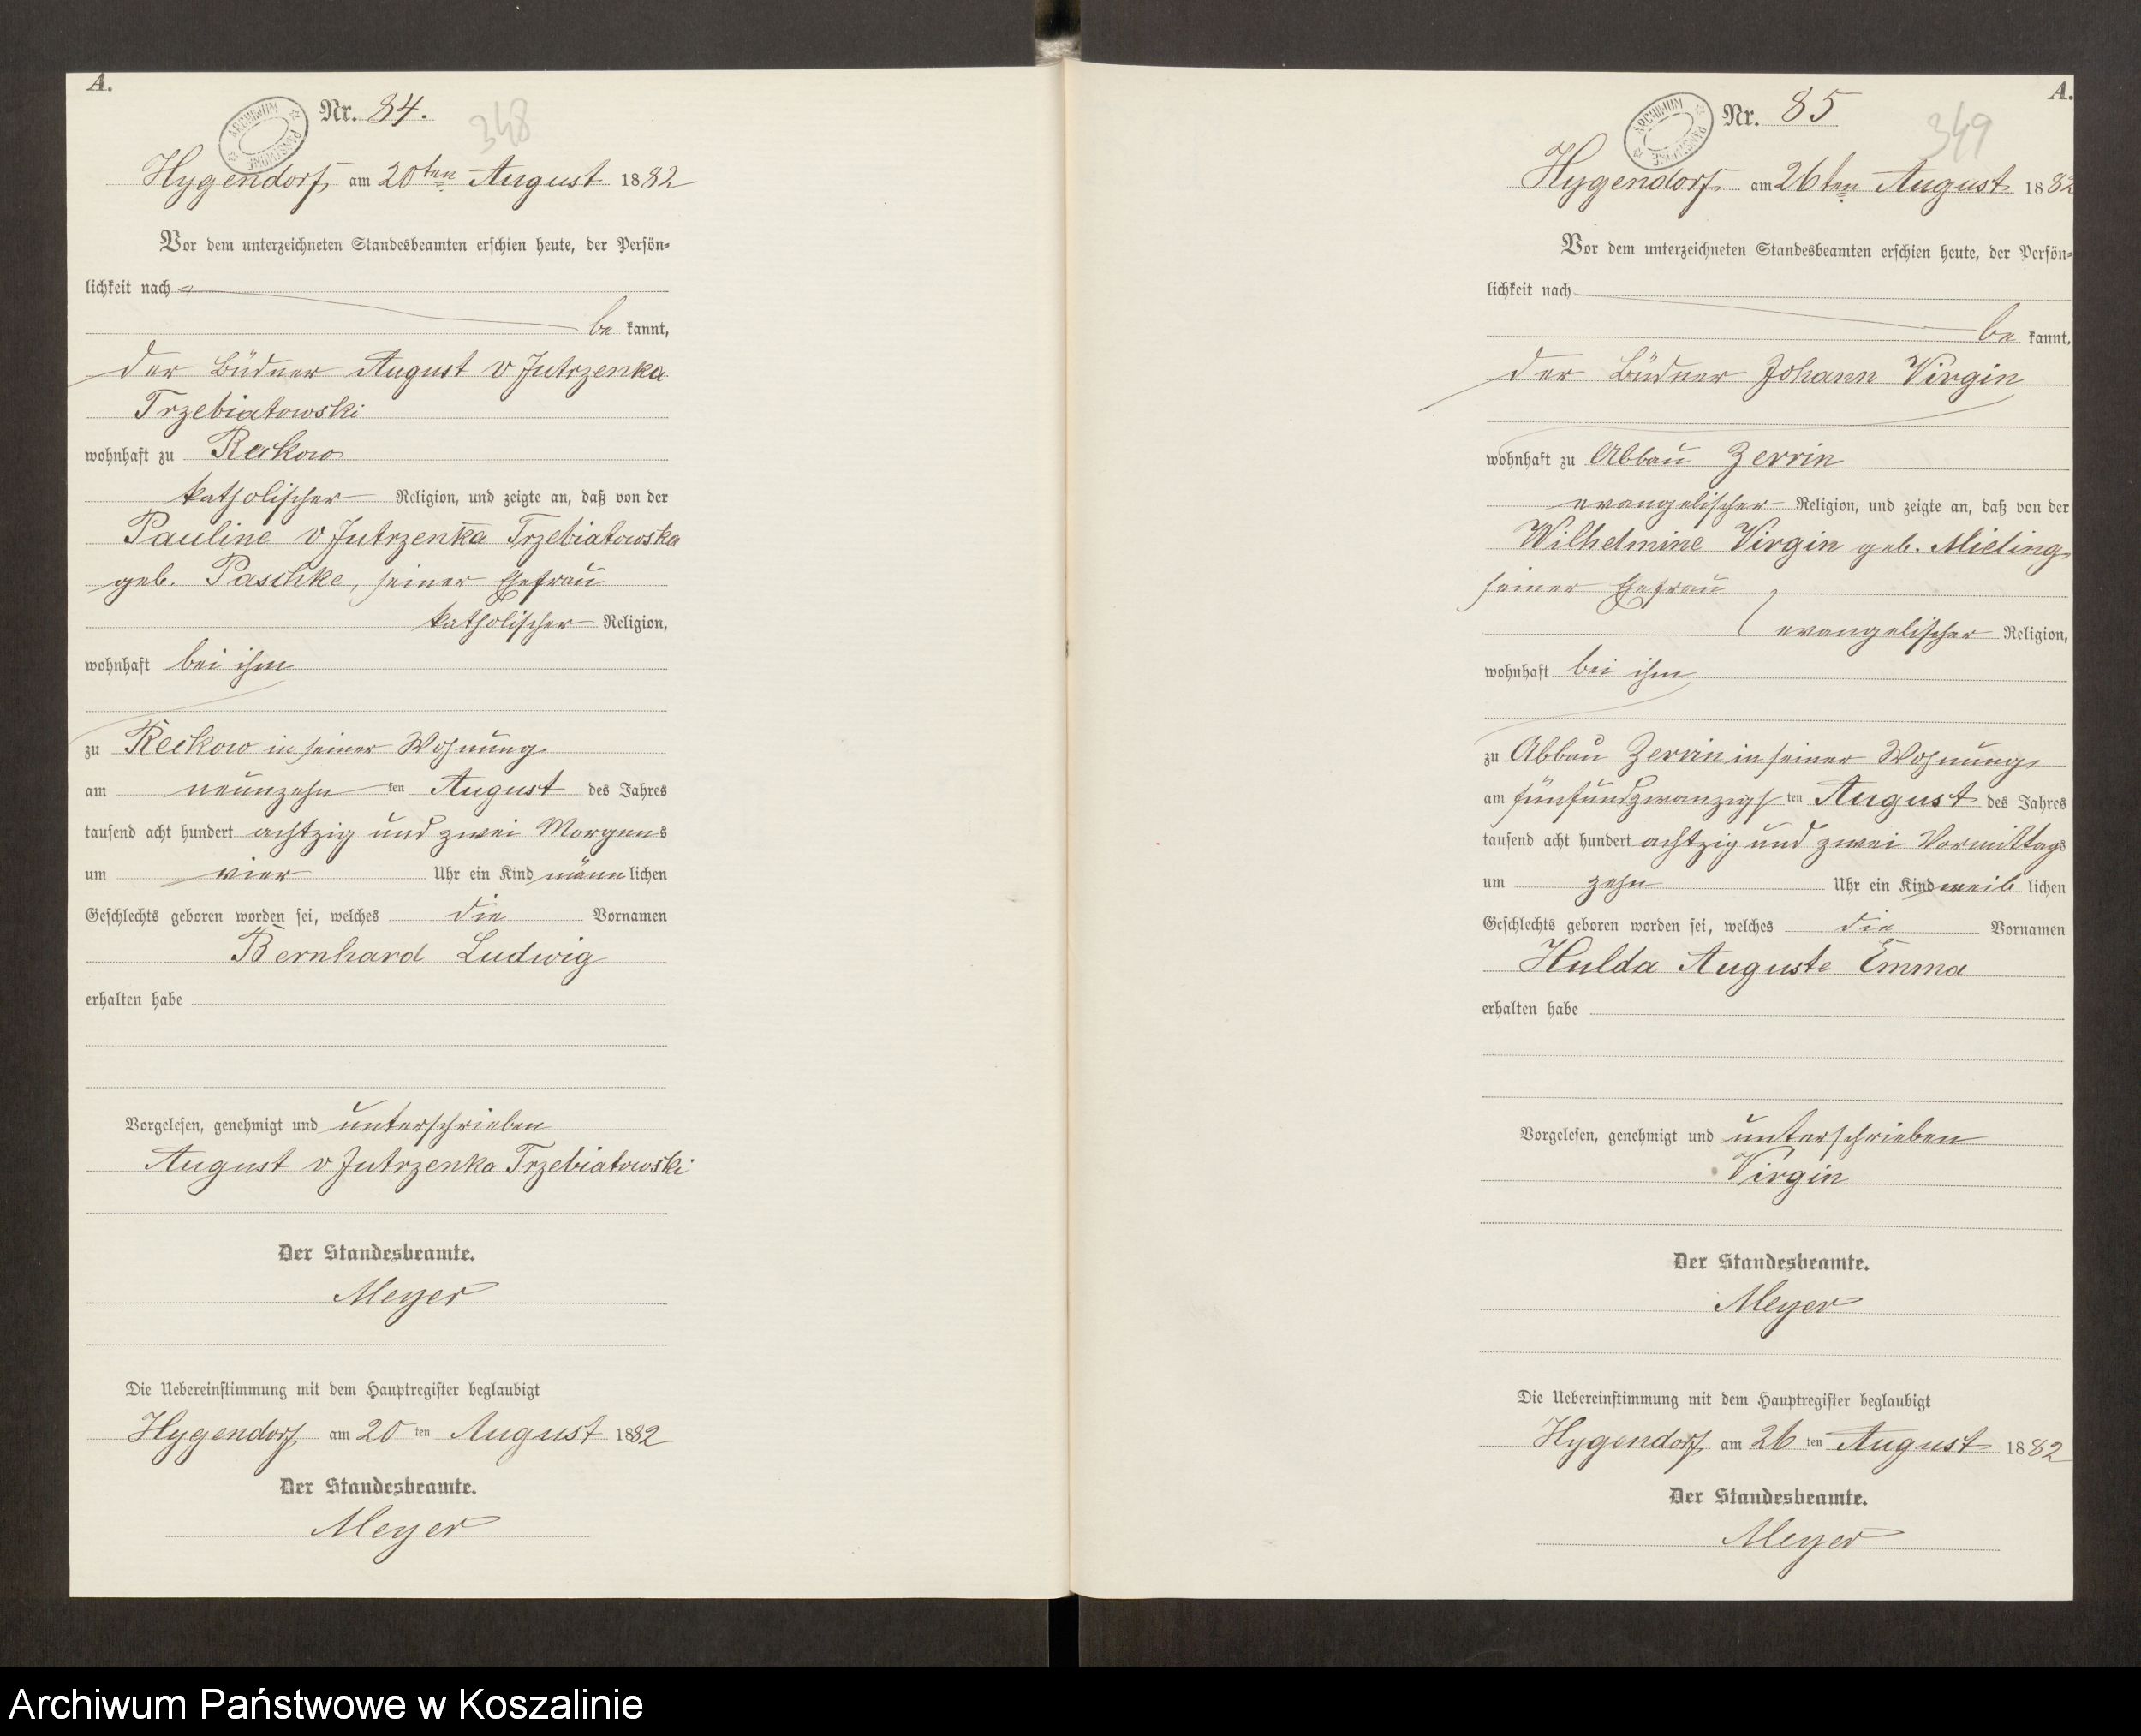 A.
Nr. 84.
348
ARCHIWUM PAŃSTWOWE
Hygendorf, am 20ten August 1882
Vor dem unterzeichneten Standesbeamten erschien heute, der Persön-
lichkeit nach
be kannt,
der Büdner August v Jutrzenka
Trzebiatowski
wohnhaft zu Reckow
katholischer Religion, und zeigte an, daß von der
Pauline v Jutrzenka Trzebiatowska
geb. Paschke, seiner Ehefrau
katholischer Religion,
wohnhaft bei ihm
zu Reckow in seiner Wohnung
am neunzehn ten August des Jahres
tausend acht hundert achtzig und zwei Morgens
um vier Uhr ein Kind männ lichen
Geschlechts geboren worden sei, welches die Vornamen
Bernhard Ludwig
erhalten habe
Vorgelesen, genehmigt und unterschrieben
August v Jutrzenka Trzebiatowski
Der Standesbeamte.
Meyer
Die Uebereinstimmung mit dem Hauptregister beglaubigt
Hygendorf am 20 ten August 1882
Der Standesbeamte.
Meyer
A.
Nr. 85
349
ARCHIWUM PAŃSTWOWE
Hygendorf, am 26ten August 1882
Vor dem unterzeichneten Standesbeamten erschien heute, der Persön-
lichkeit nach
be kannt,
der Büdner Johann Virgin
wohnhaft zu Abbau Zerrin
evangelischer Religion, und zeigte an, daß von der
Wilhelmine Virgin geb. Mieling,
seiner Ehefrau
evangelischer Religion,
wohnhaft bei ihm
zu Abbau Zerrin in seiner Wohnung
am fünfundzwanzigs ten August des Jahres
tausend acht hundert achtzig und zwei Vormittags
um zehn Uhr ein Kind weib lichen
Geschlechts geboren worden sei, welches die Vornamen
Hulda Auguste Emma
erhalten habe
Vorgelesen, genehmigt und unterschrieben
Virgin
Der Standesbeamte.
Meyer
Die Uebereinstimmung mit dem Hauptregister beglaubigt
Hygendorf, am 26 ten August 1882
Der Standesbeamte.
Meyer
Archiwum Państwowe w Koszalinie